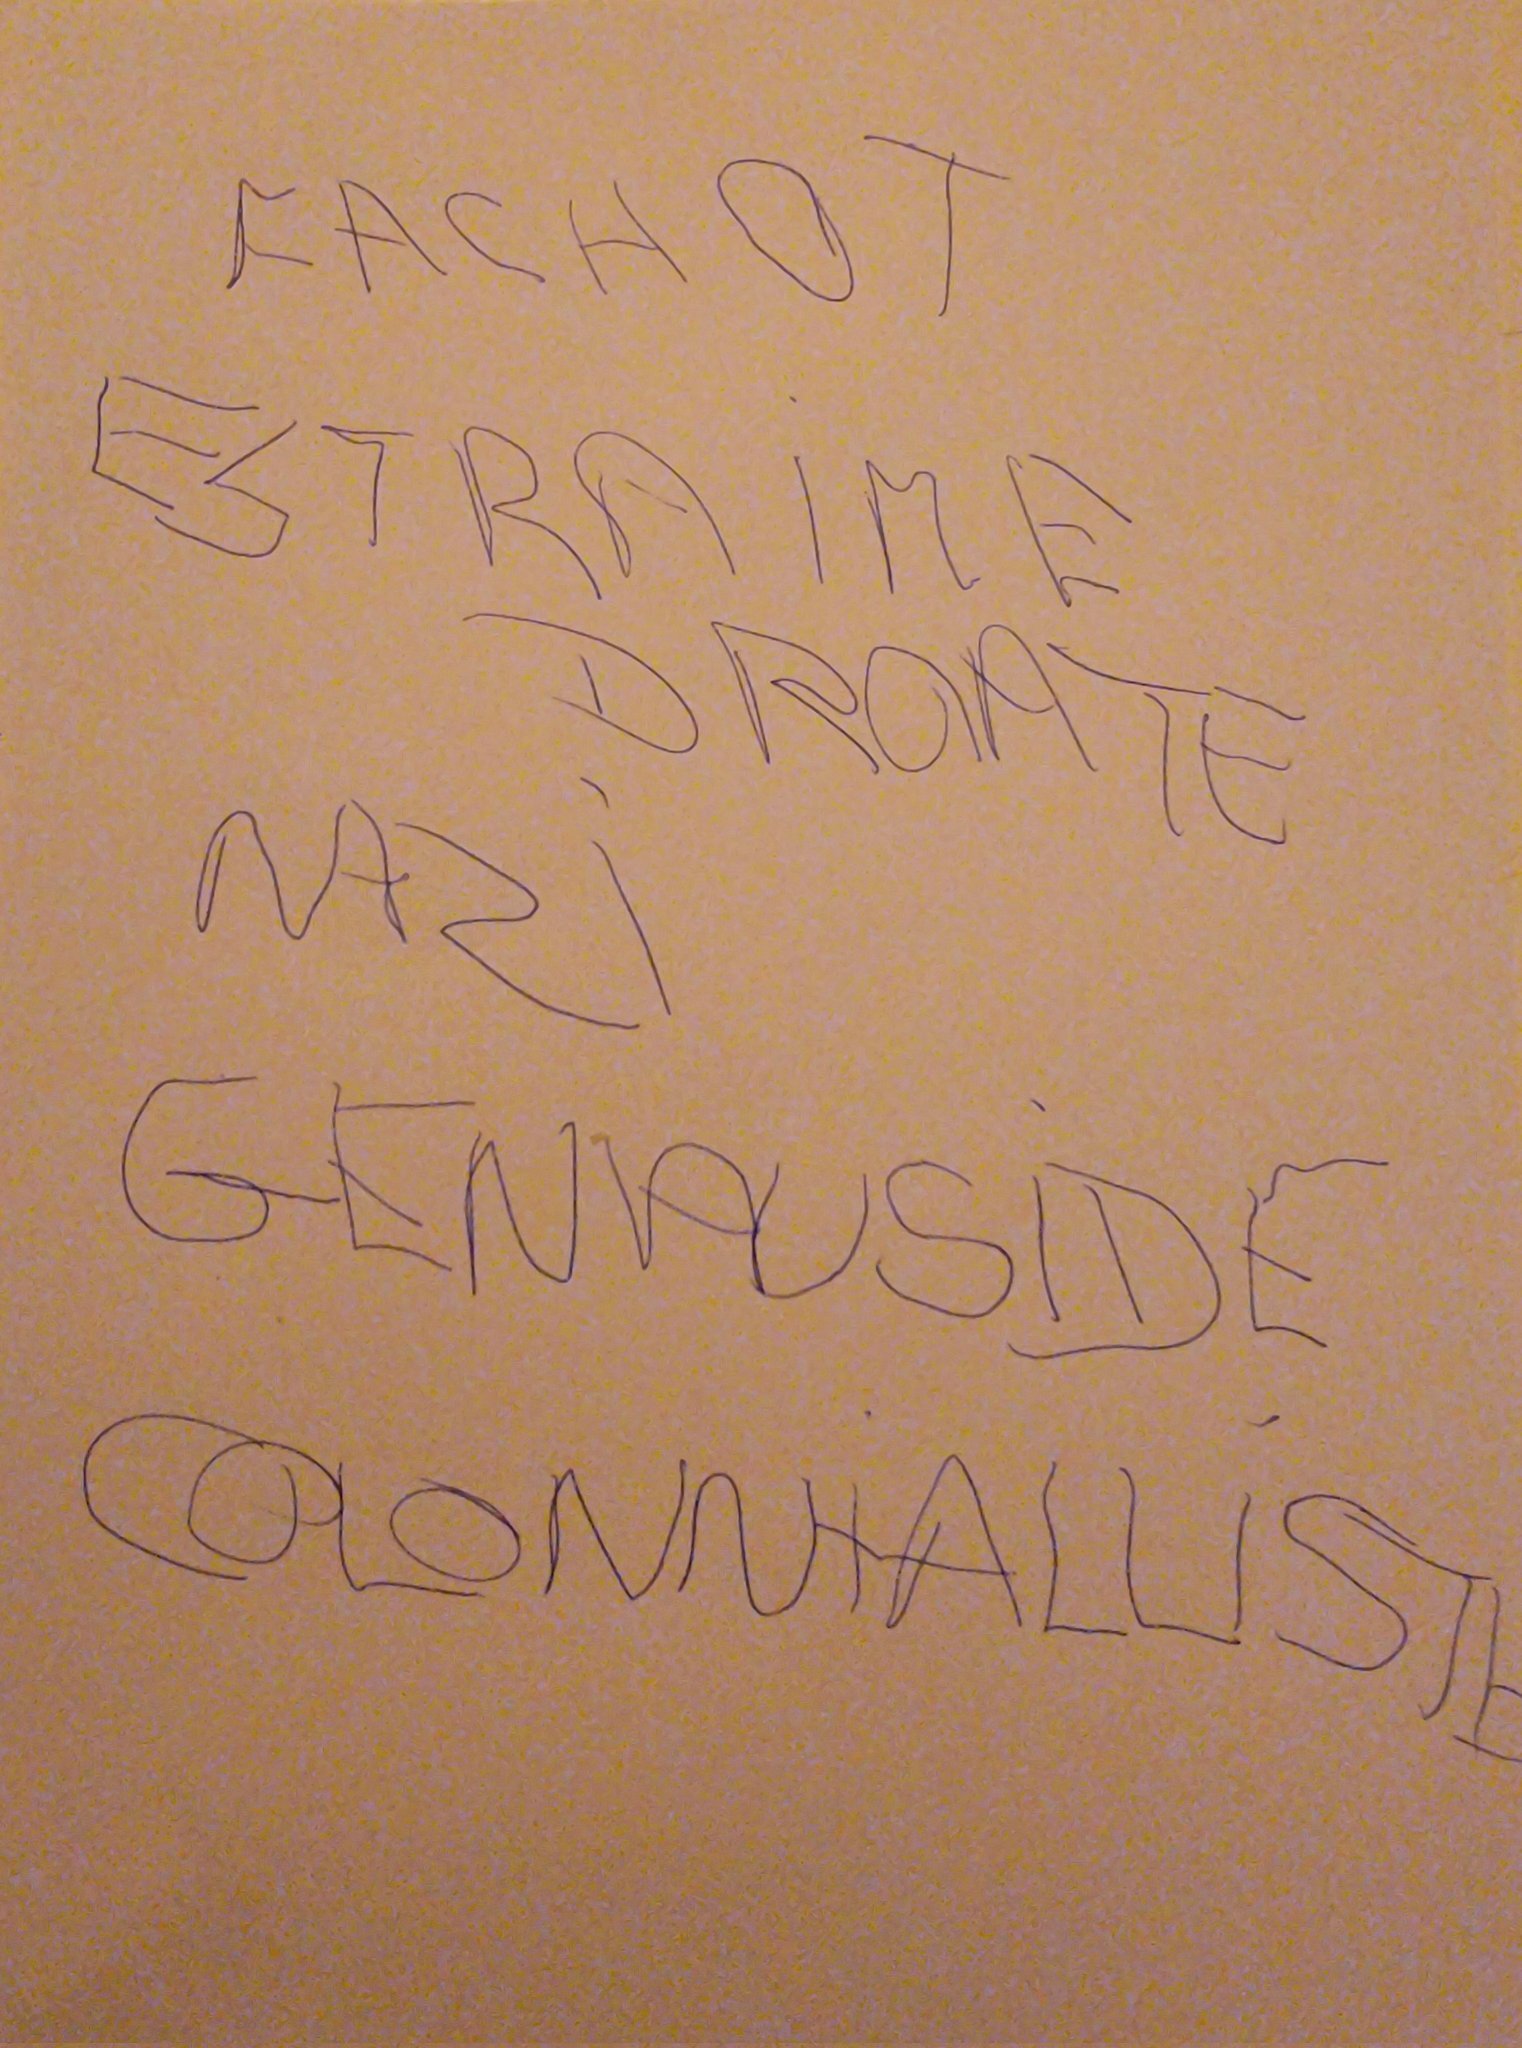 FACHOT
ESTRAIME
DROATE
NAZI
GENAUSIDE
COLONNIALLISTE